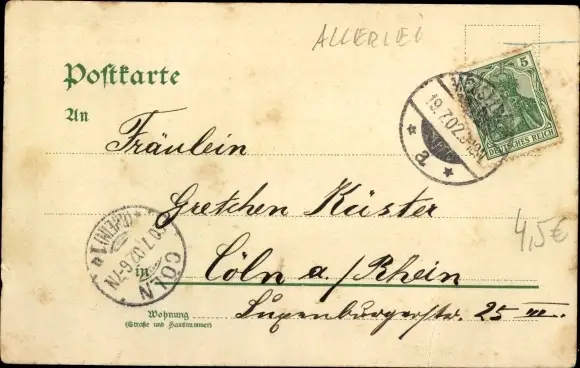 ALLERLEI
Postkarte
5
DEUTSCHES REICH
19.7.02
a
An
Fräulein
Gretchen Küster
4,5€
in Cöln a/Rhein
CÖLN
Wohnung
(Straße und Hausnummer)
Luxenburgerstr. 25 III.